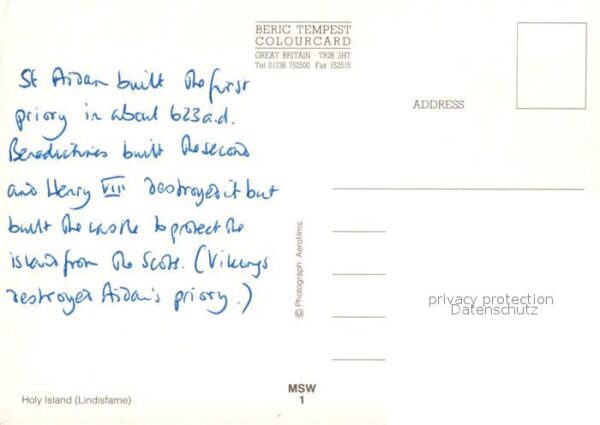 BERIC TEMPEST
COLOURCARD
GREAT BRITAIN TR26 3HT
Tel 01736 752500 Fax 752515
St Aidan built the first
priory in about 623 a.d.
Benedictines built the second
and Henry VIII destroyed it but
built the castle to protect the
island from the Scots. (Vikings
destroyed Aidan's priory.)
ADDRESS
© Photograph: Aerofilms.
privacy protection
Datenschutz
Holy Island (Lindisfarne)
MSW
1